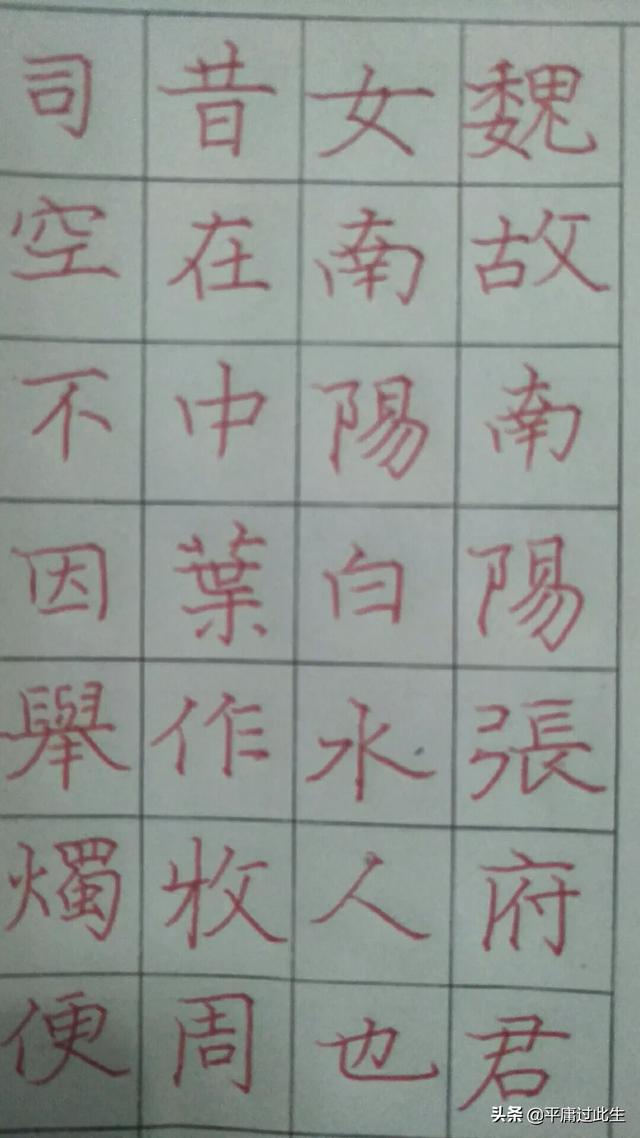 魏故南陽張府君
女南陽白水人也
昔在中葉作牧周
司空不因舉燭便
头条 @平庸过此生